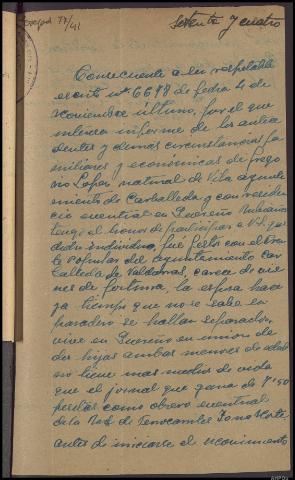 Setenta y cuatro
Consecuente a su respetable
escrito nº 6698 de fecha 4 de
noviembre último, por el que
interesa informe de los antece
dentes y demás circunstancias fa
miliares y económicas de Grego
rio López, natural de Vila ayunta
miento de Carballeda y con residen
cia eventual en
tengo el honor de participar a V.S. que
dicho individuo, fué
Popular del ayuntamiento Car
balleda de Valdeorras, carece de bie
nes de fortuna, la esposa hace
ya tiempo que no se sabe su
paradero se hallan separados,
vive en en unión de
dos hijas ambas menores de edad
no tiene mas medios de vida
que el jornal que gana de 9'50
pesetas como obrero eventual
de la Red de Ferrocarriles Zona Norte
antes de iniciarse el movimiento